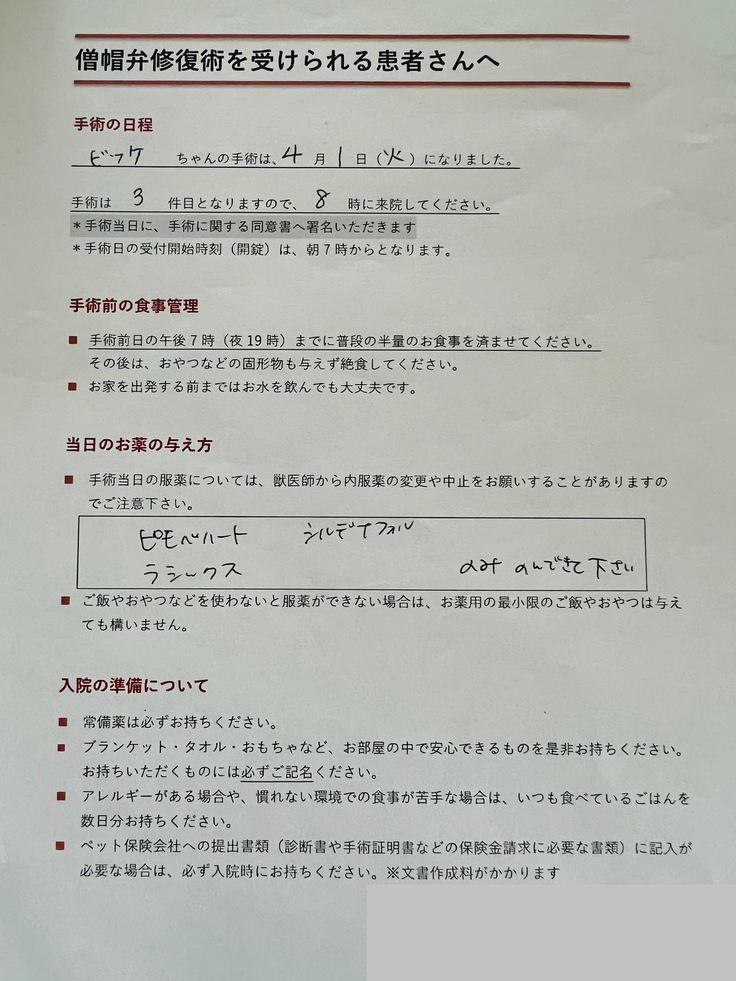 僧帽弁修復術を受けられる患者さんへ
手術の日程
ビッケ ちゃんの手術は、4 月 1 日（火）になりました。
手術は 3 件目となりますので、 8 時に来院してください。
＊手術当日に、手術に関する同意書へ署名いただきます
＊手術日の受付開始時刻（開錠）は、朝7時からとなります。
手術前の食事管理
■ 手術前日の午後7時（夜19時）までに普段の半量のお食事を済ませてください。
その後は、おやつなどの固形物も与えず絶食してください。
■ お家を出発する前まではお水を飲んでも大丈夫です。
当日のお薬の与え方
■ 手術当日の服薬については、獣医師から内服薬の変更や中止をお願いすることがありますの
でご注意下さい。
ピモベハート シルデナフィル
ラシックス のみ のんできて下さい
■ ご飯やおやつなどを使わないと服薬ができない場合は、お薬用の最小限のご飯やおやつは与え
ても構いません。
入院の準備について
■ 常備薬は必ずお持ちください。
■ ブランケット・タオル・おもちゃなど、お部屋の中で安心できるものを是非お持ちください。
お持ちいただくものには必ずご記名ください。
■ アレルギーがある場合や、慣れない環境での食事が苦手な場合は、いつも食べているごはんを
数日分お持ちください。
■ ペット保険会社への提出書類（診断書や手術証明書などの保険金請求に必要な書類）に記入が
必要な場合は、必ず入院時にお持ちください。※文書作成料がかかります